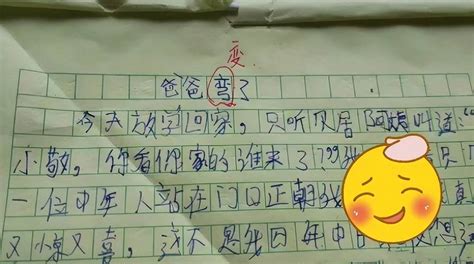 变
爸爸弯了
今天放学回家，只听居阿姨叫道：“
小敬，你看你家的谁来了
一位中年人站在门口正朝我 真
又惊又喜，这不是我年中日 想